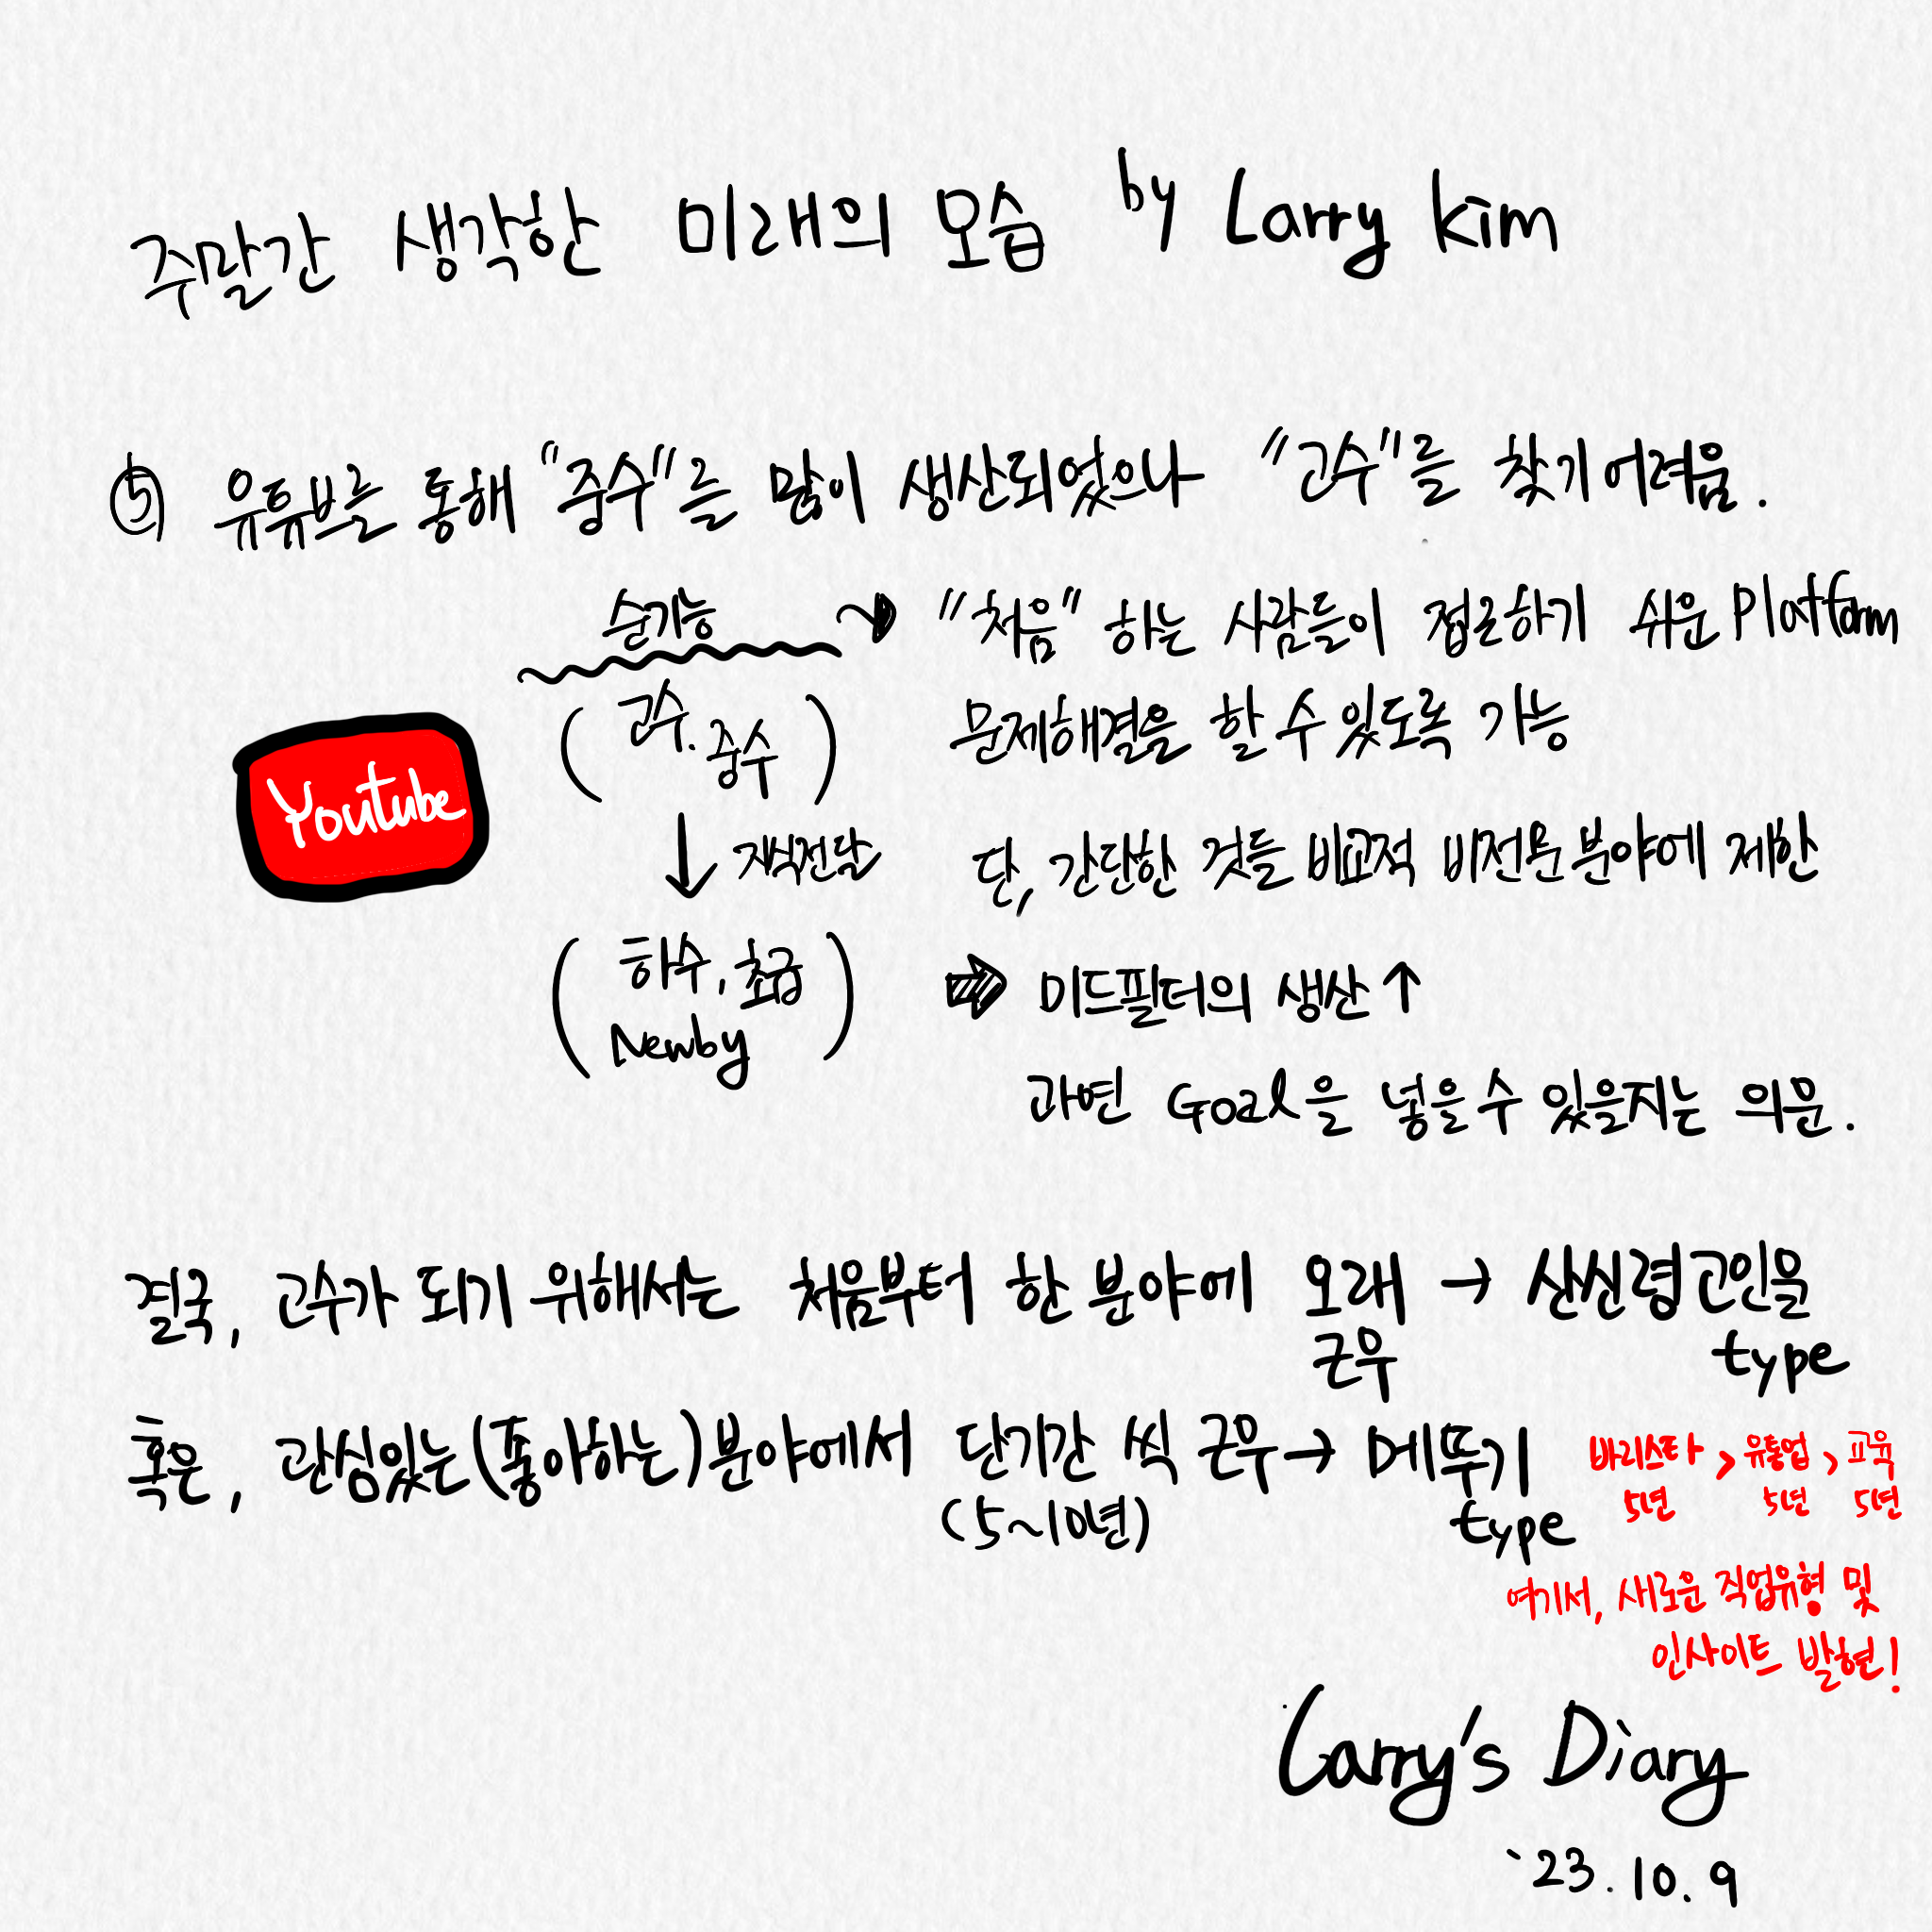 주말간 생각한 미래의 모습 by Larry kim
⑤ 유튜브를 통해 "중수"를 많이 생산되었으나 "고수"를 찾기 어려움.
순기능 → "처음" 하는 사람들이 접근하기 쉬운 Platform
(고수. 중수) 문제해결을 할 수 있도록 가능
Youtube
↓ 지식전달 단, 간단한 것들 비교적 비전문분야에 제한
(하수, 초급 ⇒ 미드필터의 생산 ↑
Newby)
과연 Goal을 넣을 수 있을지는 의문.
결국, 고수가 되기 위해서는 처음부터 한 분야에 오래 → 산신령 고인물
근무 type
혹은, 관심있는(좋아하는)분야에서 단기간 씩 근무 → 메뚜기
(5~10년) type
바리스타 > 유통업 > 교육
5년 5년 5년
여기서, 새로운 직업유형 및
인사이트 발현!
Larry's Diary
`23.10.9